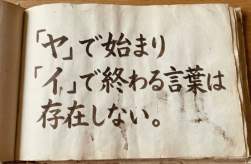 「ヤ」で始まり
「イ」で終わる言葉は
存在しない。